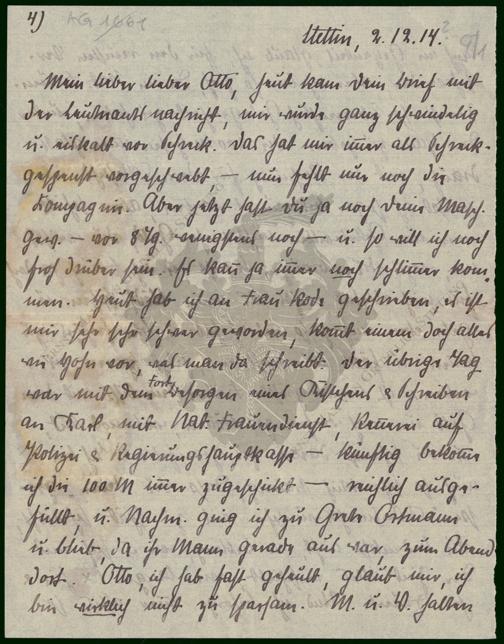 4) AG 1661
Stettin, 2.12.14.
Mein lieber lieber Otto, heut kam dein Brief mit
der Leutnantsnachricht, mir wurde ganz schwindelig
u. eiskalt vor Schreck. Das hat mir immer als Schreck-
gespenst vorgeschwebt, – nun fehlt nur noch die
Kompagnie. Aber jetzt hast du ja noch dein Masch.
gew. – vor 8 Tg. wenigstens noch – u. so will ich noch
froh drüber sein. Es kann ja immer noch schlimmer kom-
men. Heut hab ich an Frau Rode geschrieben, es ist
mir sehr sehr schwer geworden, kommt einem doch alles
wie Hohn vor, was man da schreibt. Der übrige Tag
war mit dem Fort besorgen eines Kistchens & Schreiben
an Karl, mit Nat. Frauendienst, Rennerei auf
Polizei & Regierungshauptkasse – künftig bekomme
ich die 100 M immer zugeschickt – reichlich ausge-
füllt, u. Nachm. ging ich zu Grete Ortmann
u. blieb, da ihr Mann gerade aus war, zum Abend
dort. Otto, ich hab fast geheult, glaub mir, ich
bin wirklich nicht zu sparsam. M. u. V. halten